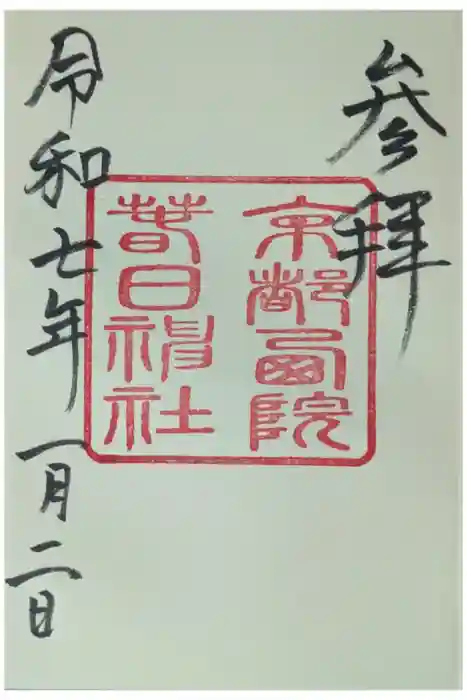 参拝
京都西院
春日神社
令和七年一月二日